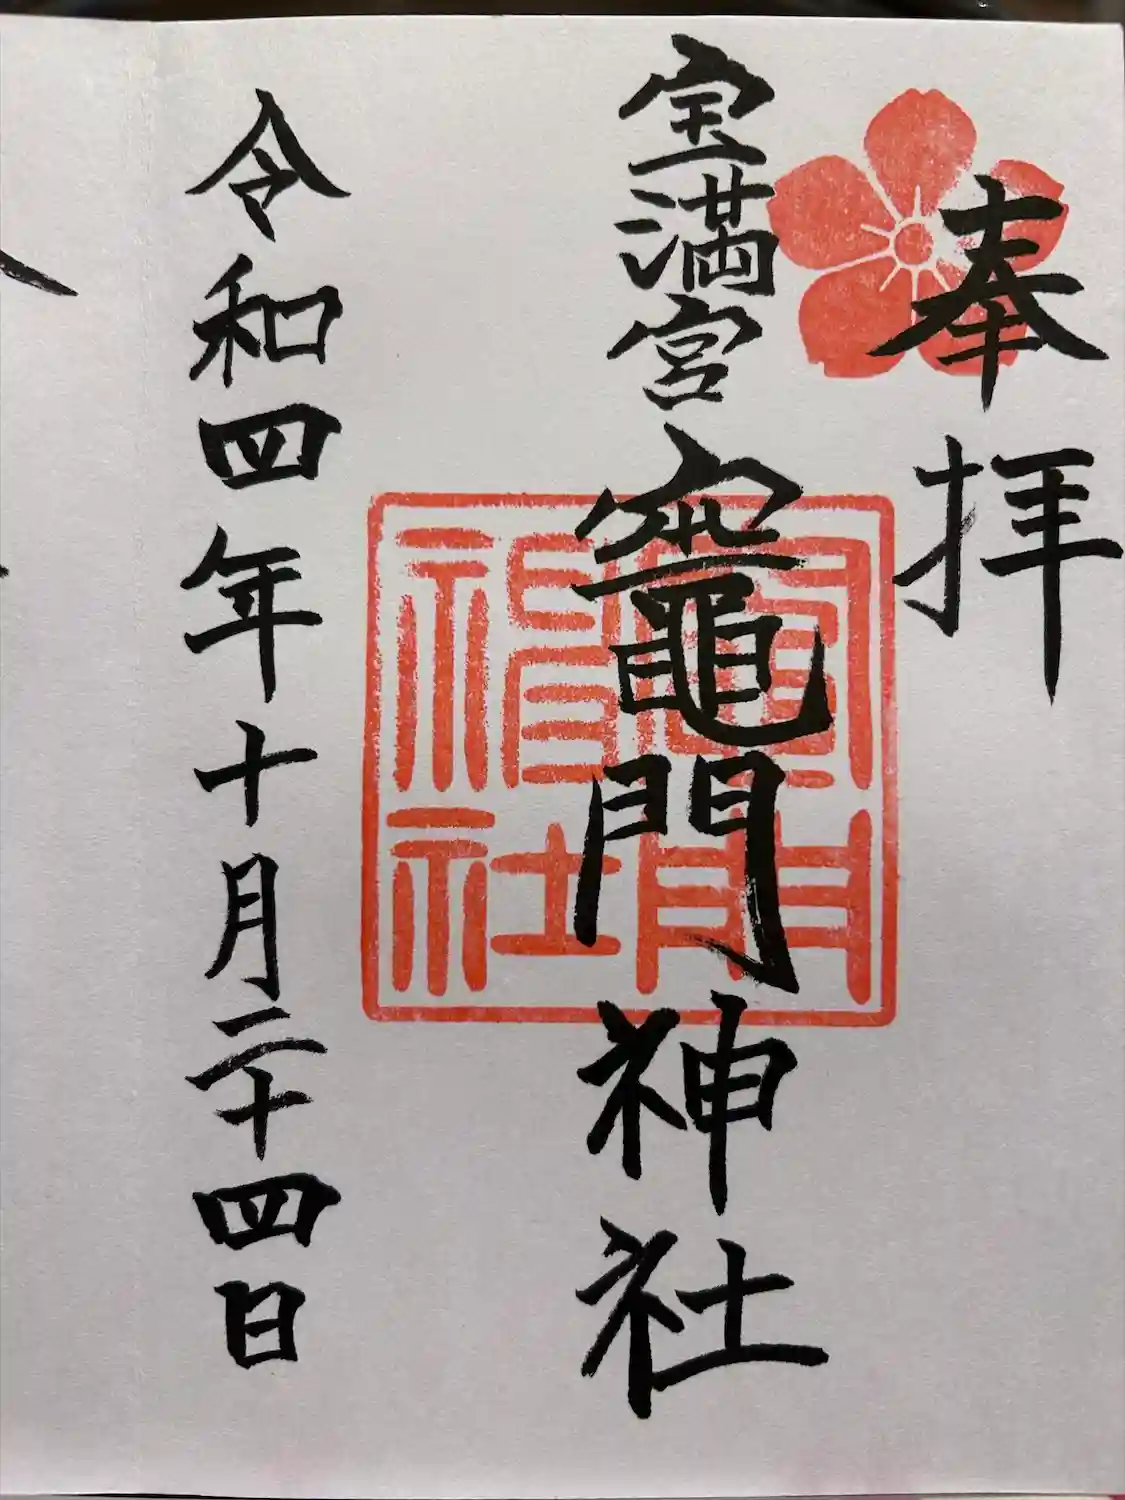 奉拝
宝満宮 竈門神社
令和四年十月二十四日
竈門神社